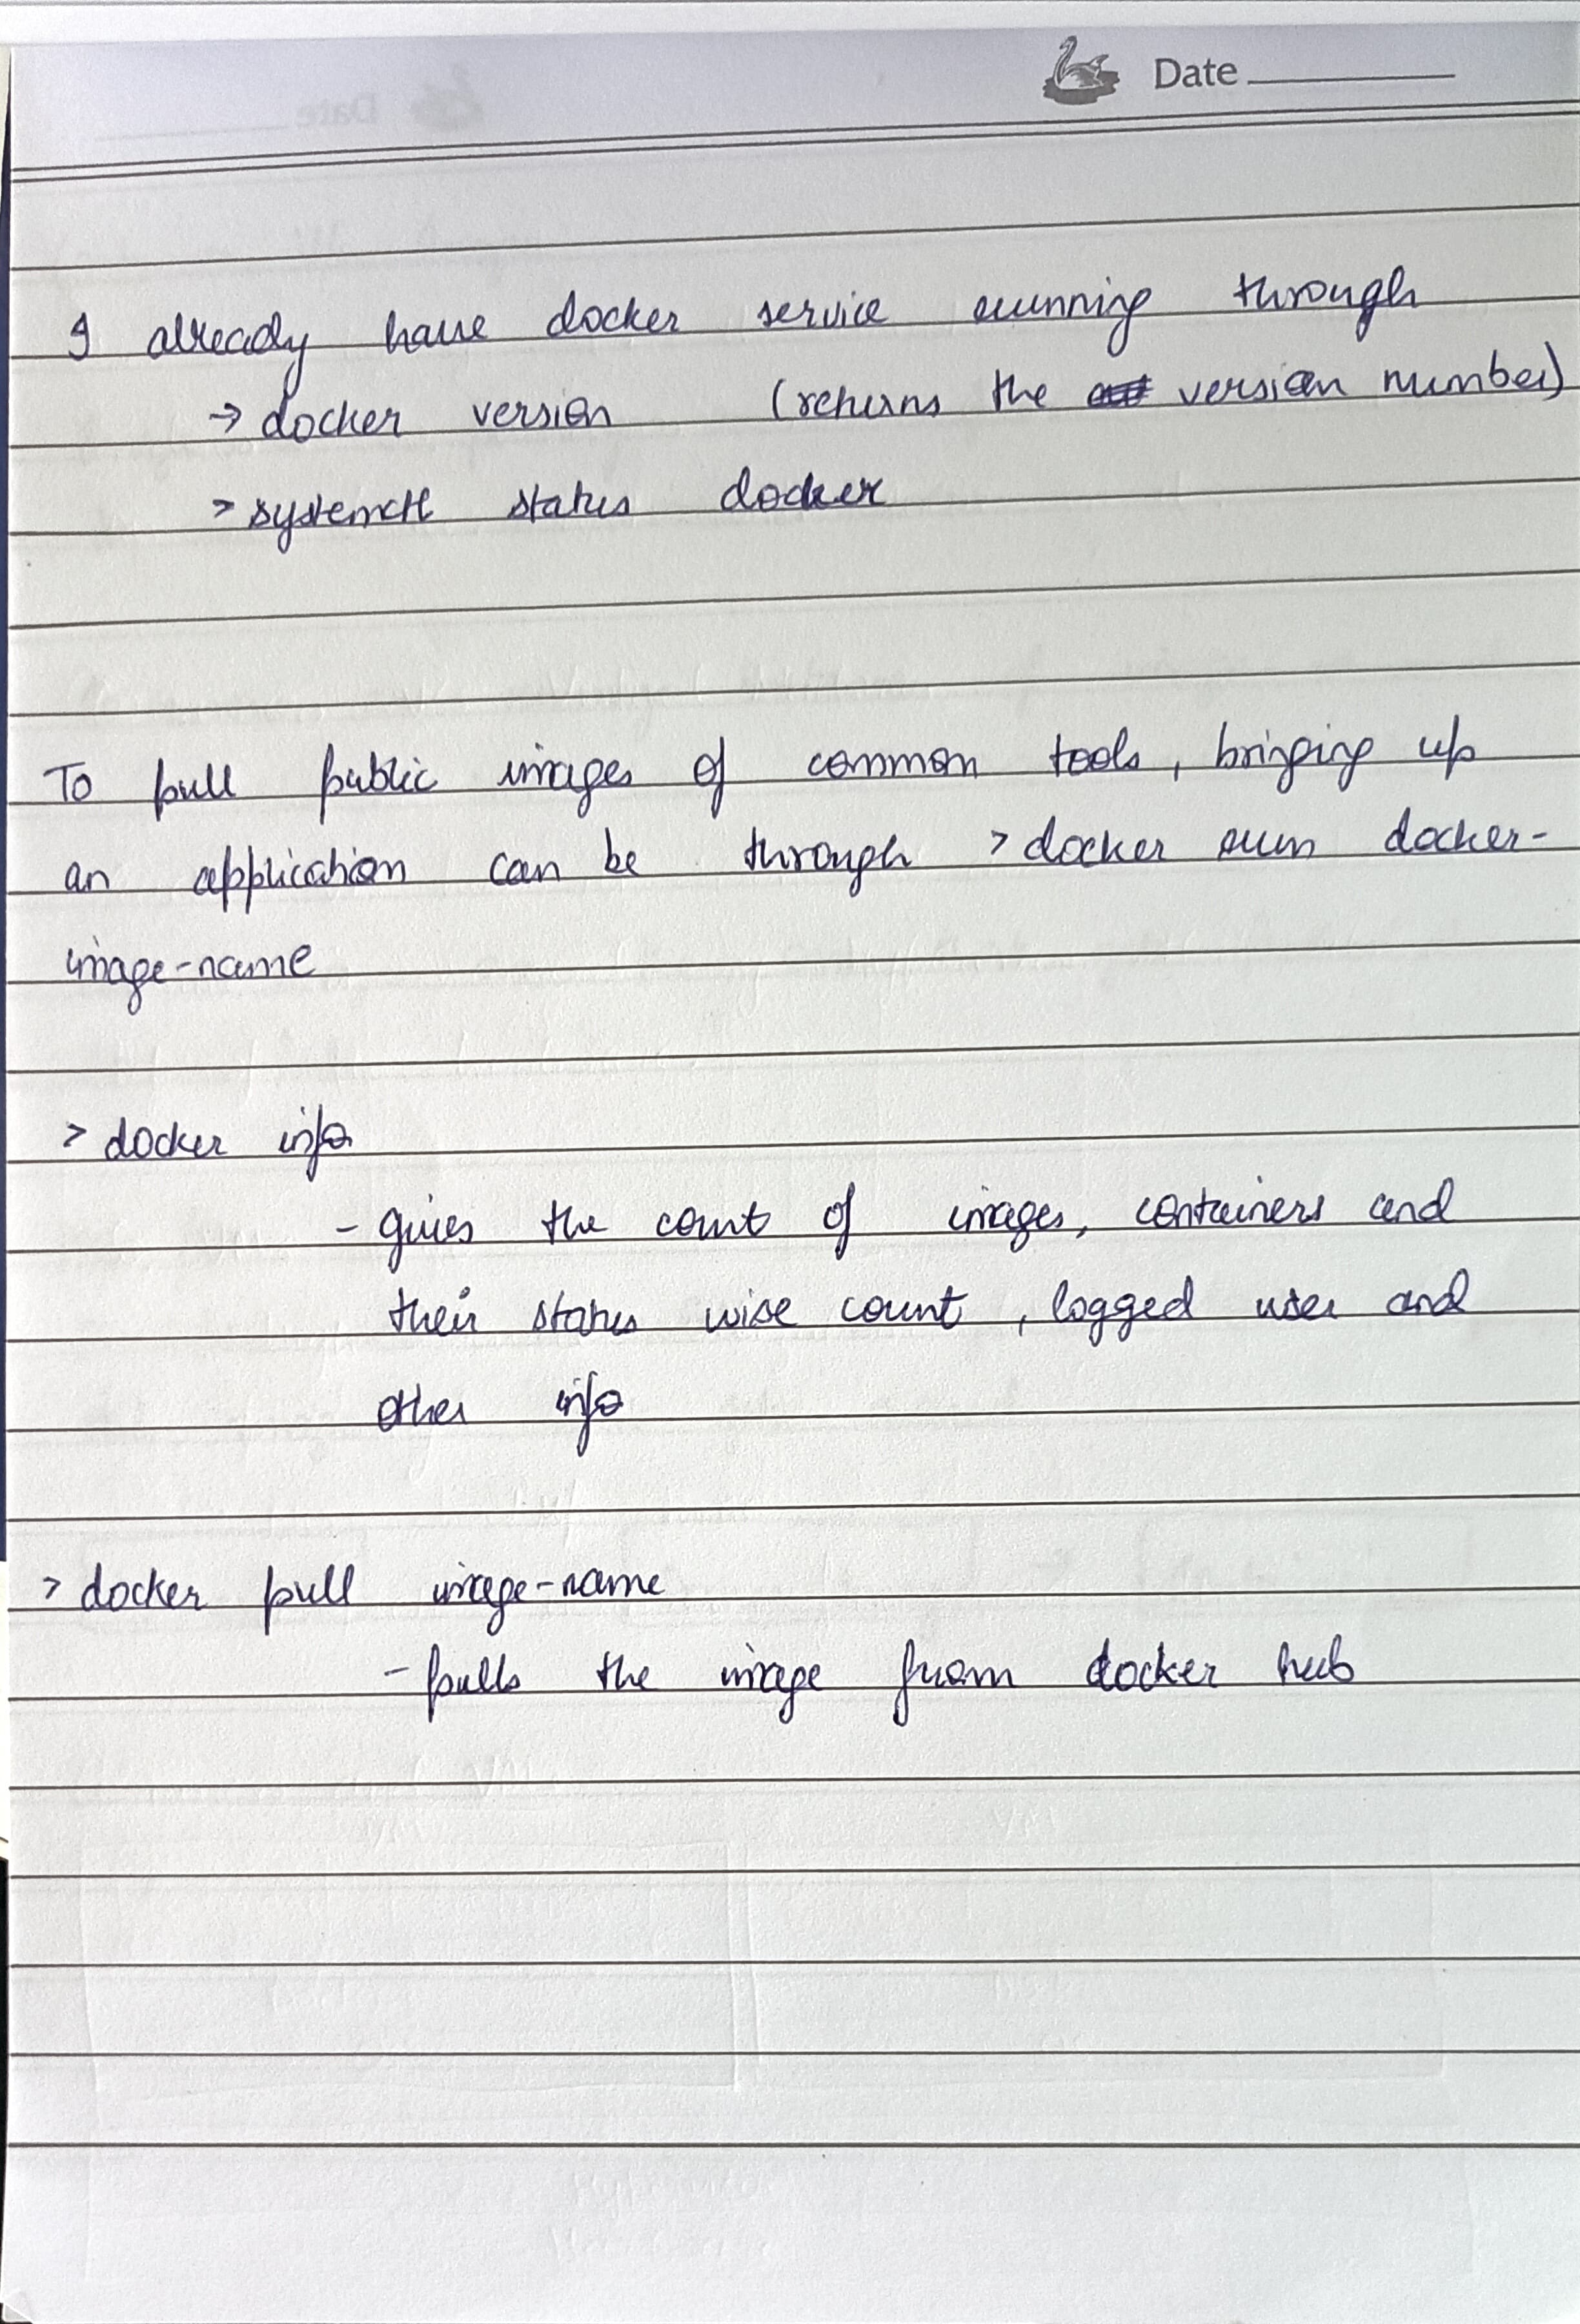 Date
I already have docker service running through
→ docker version (returns the version number)
> systemctl status docker
To pull public images of common tools, bringing up
an application can be through > docker run docker-
image-name
> docker info
- gives the count of images, containers and
their status wise count, logged user and
other info
> docker pull image-name
- pulls the image from docker hub